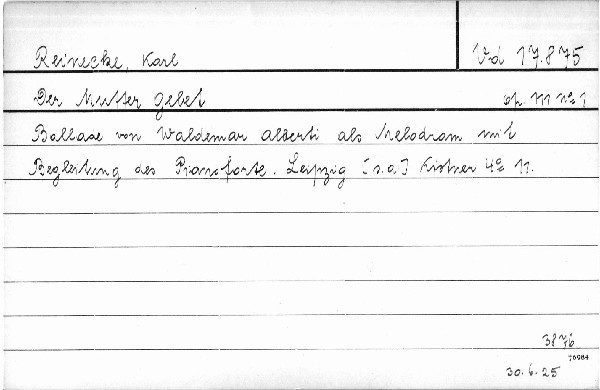 Reinecke, Karl Vd 17.875
Der Mutter Gebet op. 111 no 1
Ballade von Waldemar Alberti als Melodram mit
Begleitung des Pianoforte. Leipzig [s.a.] Kistner 4º 11.
3876
76984
30.6.25